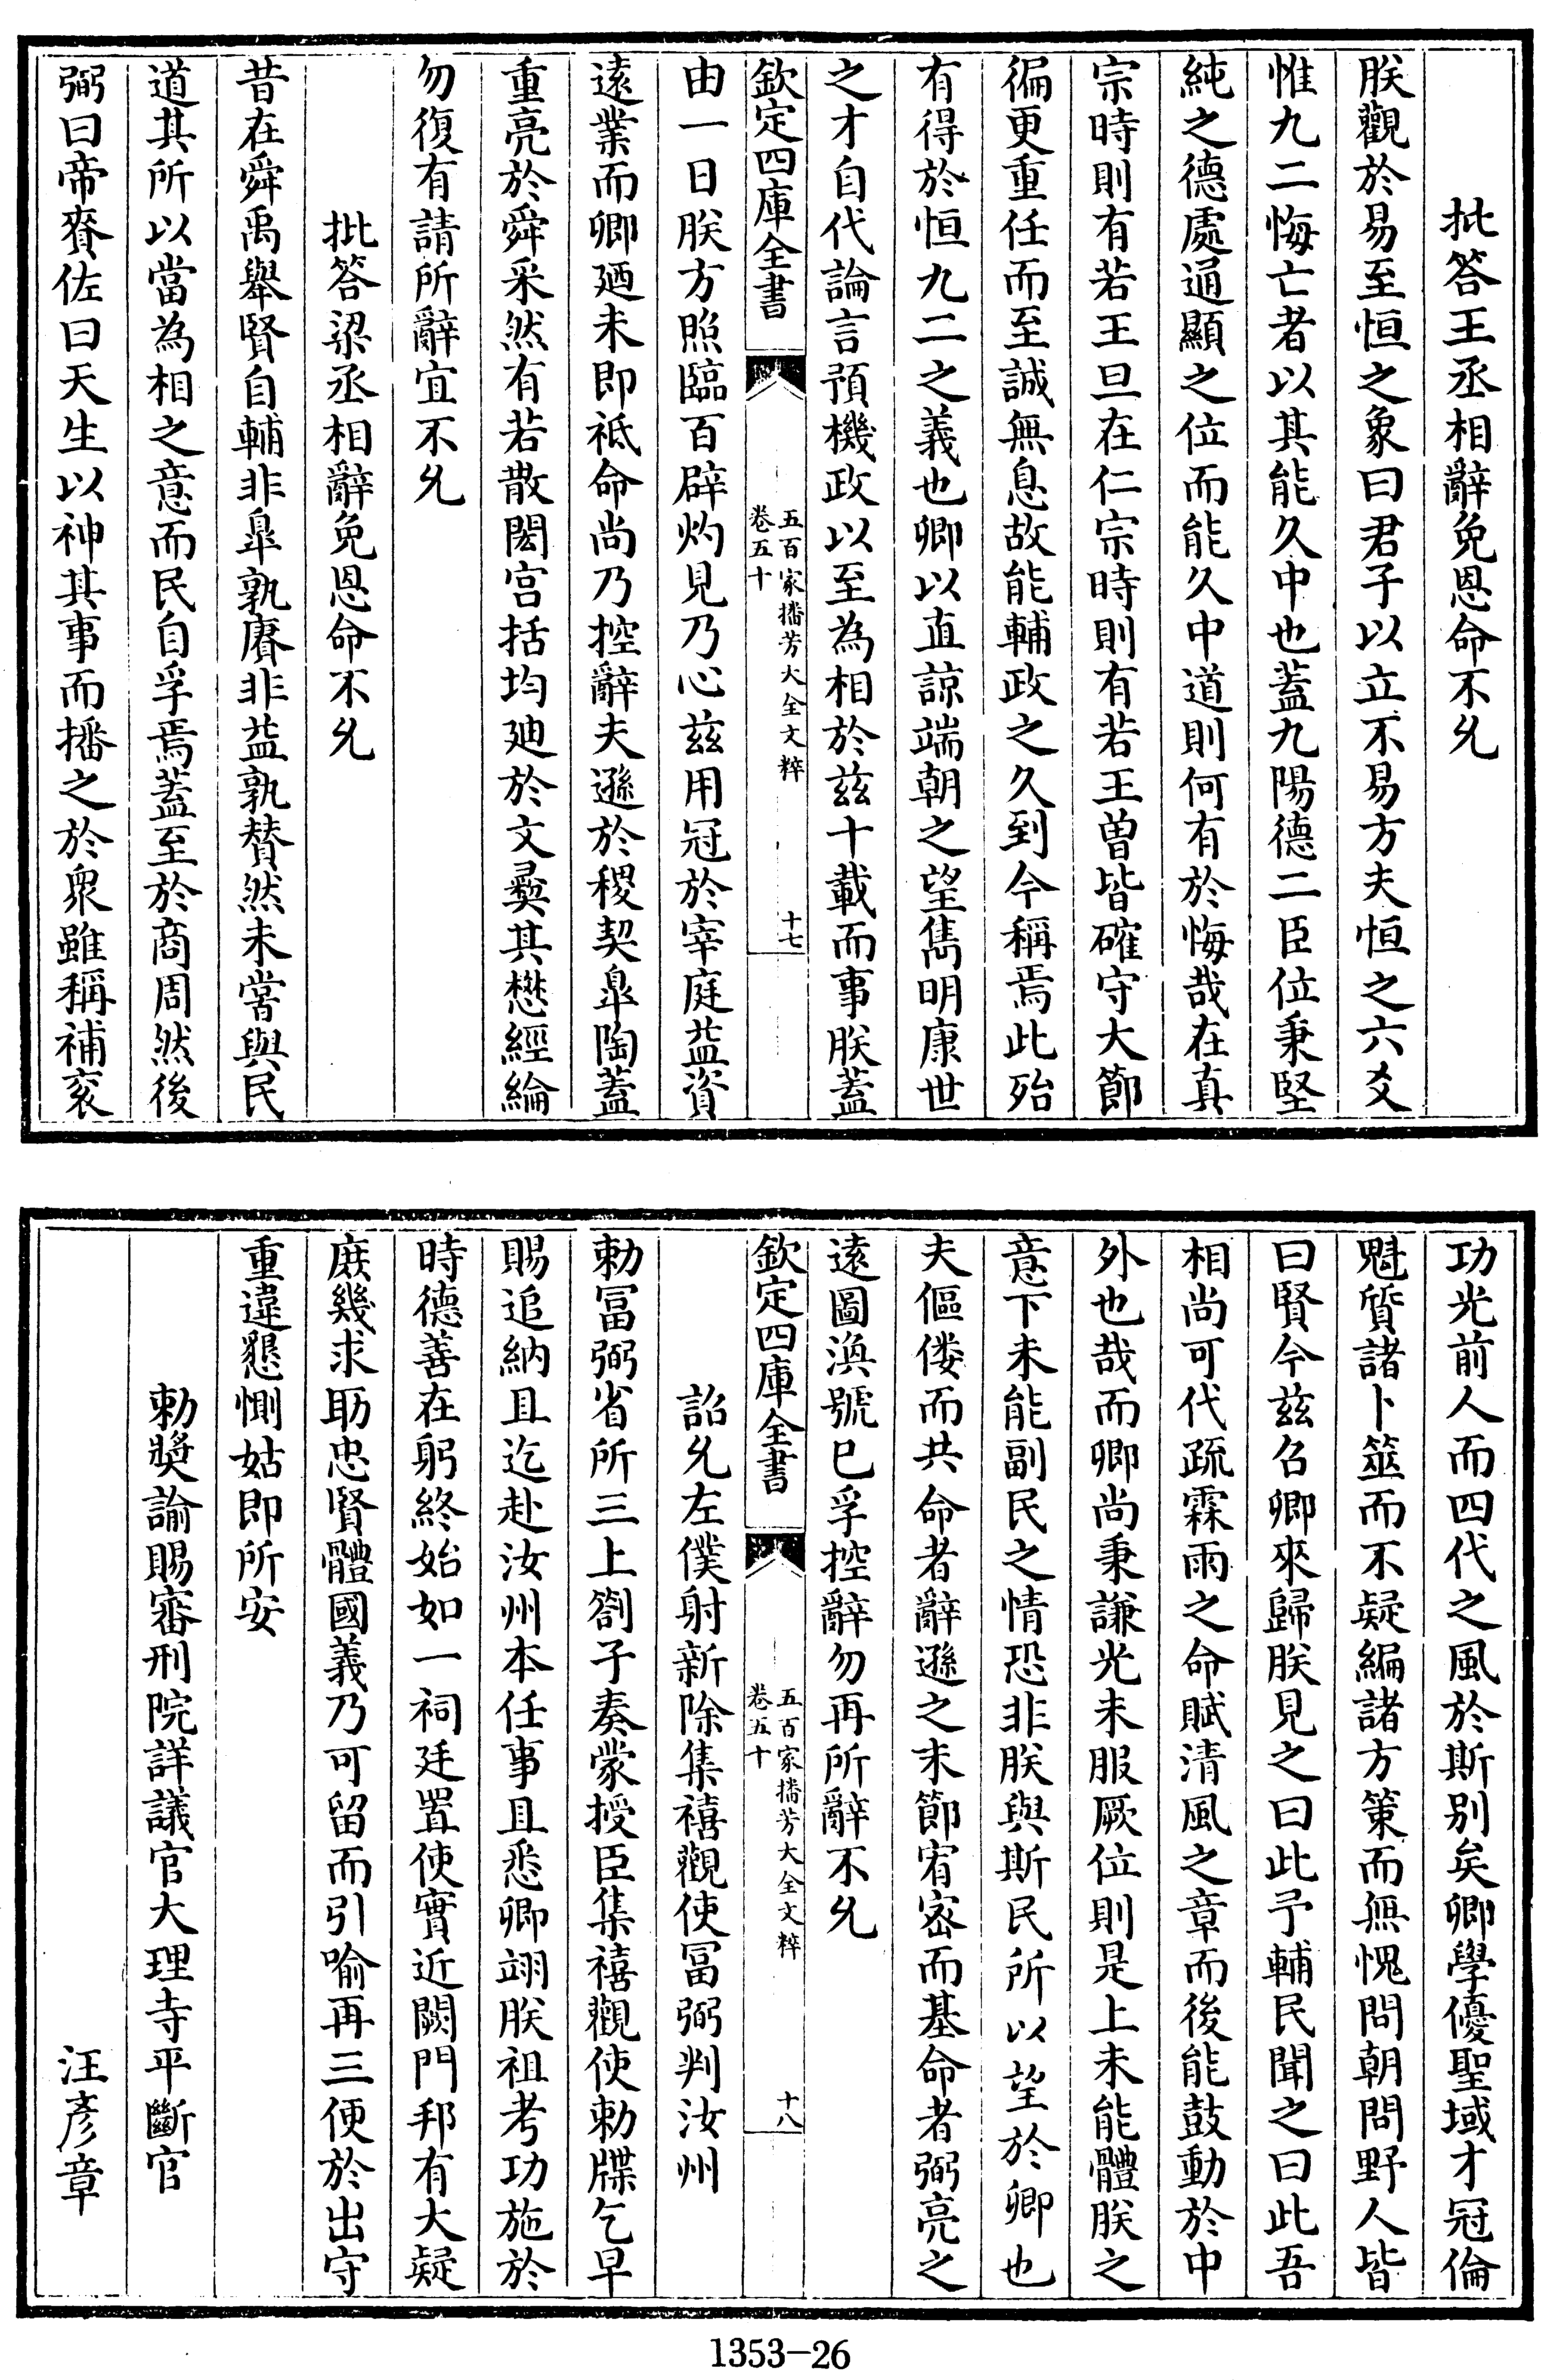 批答王丞相辭免恩命不允
朕觀於易至恒之象曰君子以立不易方夫恒之六爻
惟九二悔亡者以其能久中也蓋九陽德二臣位秉堅
純之德處通顯之位而能久中道則何有於悔哉在真
宗時則有若王旦在仁宗時則有若王曾皆確守大節
徧更重任而至誠無息故能輔政之久到今稱焉此殆
有得於恒九二之義也卿以直諒端朝之望雋明康世
之才自代論言預機政以至為相於茲十載而事朕蓋
欽定四庫全書
五百家播芳大全文粹
卷五十
十七
由一日朕方照臨百辟灼見乃心茲用冠於宰庭益資
遠業而卿廼未即祇命尚乃控辭夫遜於稷契臯陶蓋
重亮於舜采然有若散閎宮括均廸於文彛其懋經綸
勿復有請所辭宜不允
批答梁丞相辭免恩命不允
昔在舜禹舉賢自輔非臯孰賡非益孰賛然未嘗與民
道其所以當為相之意而民自孚焉蓋至於商周然後
弼曰帝賚佐曰天生以神其事而播之於衆雖稱補衮
功光前人而四代之風於斯别矣卿學優聖域才冠倫
魁質諸卜筮而不疑編諸方策而無愧問朝問野人皆
曰賢今茲名卿來歸朕見之曰此予輔民聞之曰此吾
相尚可代疏霖雨之命賦清風之章而後能鼓動於中
外也哉而卿尚秉謙光未服厥位則是上未能體朕之
意下未能副民之情恐非朕與斯民所以望於卿也
夫傴僂而共命者辭遜之末節宥宻而基命者弼亮之
遠圖渙號已孚控辭勿再所辭不允
欽定四庫全書
五百家播芳大全文粹
卷五十
十八
詔允左僕射新除集禧觀使冨弼判汝州
勅冨弼省所三上劄子奏蒙授臣集禧觀使勅牒乞早
賜追納且迄赴汝州本任事且悉卿翊朕祖考功施於
時德善在躬終始如一祠廷置使實近闕門邦有大疑
庶幾求助忠賢體國義乃可留而引喻再三便於出守
重違懇惻姑即所安
勅奬諭賜審刑院詳議官大理寺平斷官
汪彦章
1353-26